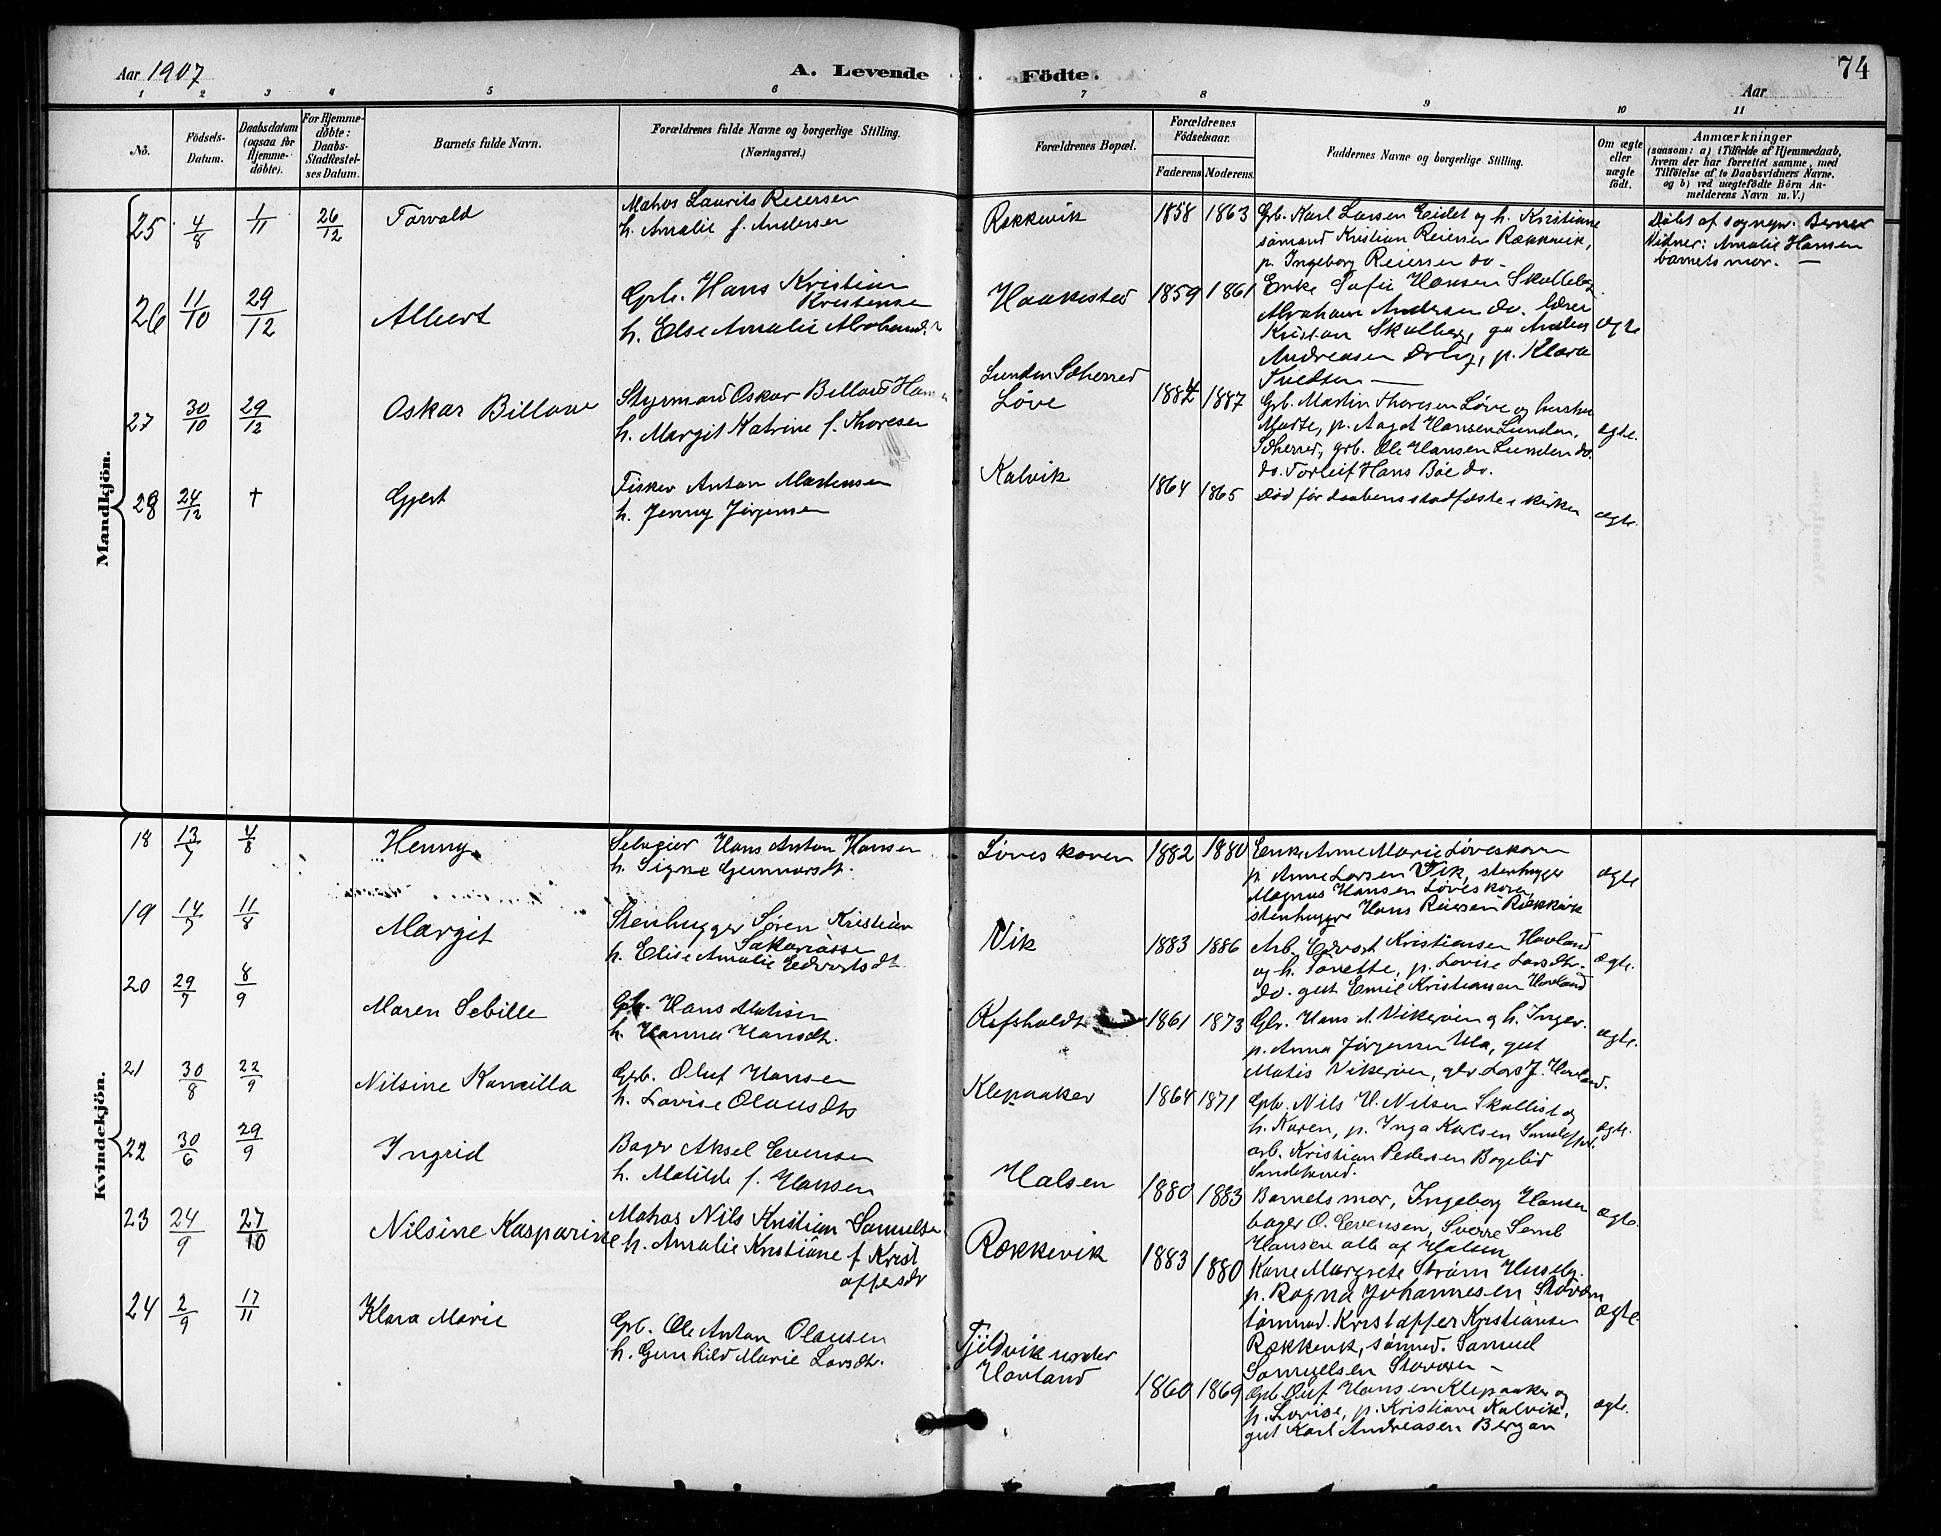 Aar 1907
A. Levende Födte.
74
Aar
1 2 3 4 5 6 7 8 9 10 11
No.
Födsels-
Datum.
Daabsdatum
(ogsaa for
Hjemme-
döbte).
For Hjemme-
döbte:
Daabs-
Stadfæstel-
ses Datum.
Barnets fulde Navn.
Forældrenes fulde Navne og borgerlige Stilling.
(Næringsvei.)
Forældrenes Bopæl.
Forældrenes
Födselsaar.
Faderens
Moderens
Faddernes Navne og borgerlige Stilling.
Om ægte
eller
uægte
födt.
Anmærkninger
(saasom: a) i Tilfælde af Hjemmedaab,
hvem der har forrettet samme, med
Tilföielse af to Daabsvidners Navne.
og b) ved uægtefödte Börn An-
melderens Navn m.V.)
Mandkjön.
25 4/8 1/11 26/12 Torvald
Matros Laurits Reiersen
h. Amalie f. Andersen
Rækkevik 1858 1863
Grb. Karl Larsen Eidet og h. Kristiane
sømand Kristian Reiersen Rækkevik,
p. Ingeborg Reiersen do -
Døbt af sognepr. Berner
Vidner: Amalie Hansen
barnets mor. -
26 11/10 29/12 Albert
Grb. Hans Kristian
Kristensen
h. Else Amalie
Haakestad 1859 1861
Enke Sofie Hansen
Abraham Andersen do. lærer
Kristian
Andreasen p. Klara
ægte
27 30/10 29/12 Oskar
Styrmand Oskar
h. Margit Katrine f. Thoresen
Lunden
Løve
1884 1887
Grb. Martin Thoresen Løve og hustru
p. Aagot Hansen Lunden,
grb. Ole Hansen Lunden do.
do. Torleif Hans Bøe do.
ægte.
28 24/12 † Gjert
Fisker Anton Martensen
h. Jenny Jørgensen
Kalvik 1864 1865
Død før daabens stadfæstes i kirken
ægte.
Kvindekjön.
18 13/7 4/8 Henny
Selveier Hans Anton Hansen
h. Signe Gunnarsdt.
Løveskoven 1882 1880
Enke Anne Marie Løveskoven
p. Anne Larsen Vik, stenhugger
Magnus Hansen Løveskoven,
stenhugger Hans Reiersen Rækkevik
ægte
19 14/7 11/8 Margit
Stenhugger Søren Kristian
Sakariassen
h. Elise Amalie Edvartsdt.
Vik 1883 1886
Arb. Edvart Kristiansen Havland
og h. Torette, p. Lovise Larsdtr.
do. gut Emil Kristiansen Havland
ægte.
20 29/7 8/9 Maren Sebille
Grb. Hans Mathisen
h. Hanna Hansdt.
Refsholdt 1861 1873
Gbr. Hans A. Vikerøen og h. Inger.
p. Anna Jørgensen Ula, gut
Matis Vikerøen, gbr Lars J. Havland.
ægte.
21 30/8 22/9 Nilsine Kamilla
Grb. Oluf Hansen
h. Lovise Olausdtr
Klepaaker 1864 1871
Grb. Nils H. Nilsen og
h. Karen, p. Inga Karlsen
arb. Kristian Pedersen
Sandeherred.
ægte.
22 30/6 29/9 Ingrid
Bager Aksel Evensen
h. Matilde f. Hansen
Halsen 1880 1883
Barnets mor, Ingeborg Hansen
bager O. Evensen, Sverre Semb
Hansen alle af Halsen
ægte.
23 24/9 27/10 Nilsine Kasparine
Matros Nils Kristian Samuelsen
h. Amalie Kristiane f. Krist
offersdt
Rækkevik 1883 1880
Kone Margrete Strøm Huseby.
p. Ragna Johannesen
sømnd. Kristoffer Kristiansen
Rækkevik, sømnd. Samuel
Samuelsen -
ægte.
24 2/9 17/11 Klara Marie
Grb. Ole Anton Olausen
h. Gunhild Marie Larsdtr.
Tjeldvik under
Havland
1860 1869
Grb. Oluf Hansen Klepaaker og
h. Lovise, p. Kristiane Kalvik,
gut Karl Andreasen Bergan
ægte.